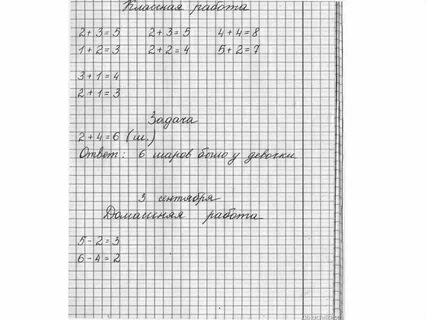 Классная работа
2+3=5 2+3=5 4+4=8
1+2=3 2+2=4 5+2=7
3+1=4
2+1=3
Задача
2+4=6 (ш.)
Ответ: 6 шаров было у девочки.
3 сентября
Домашняя работа
5-2=3
6-4=2